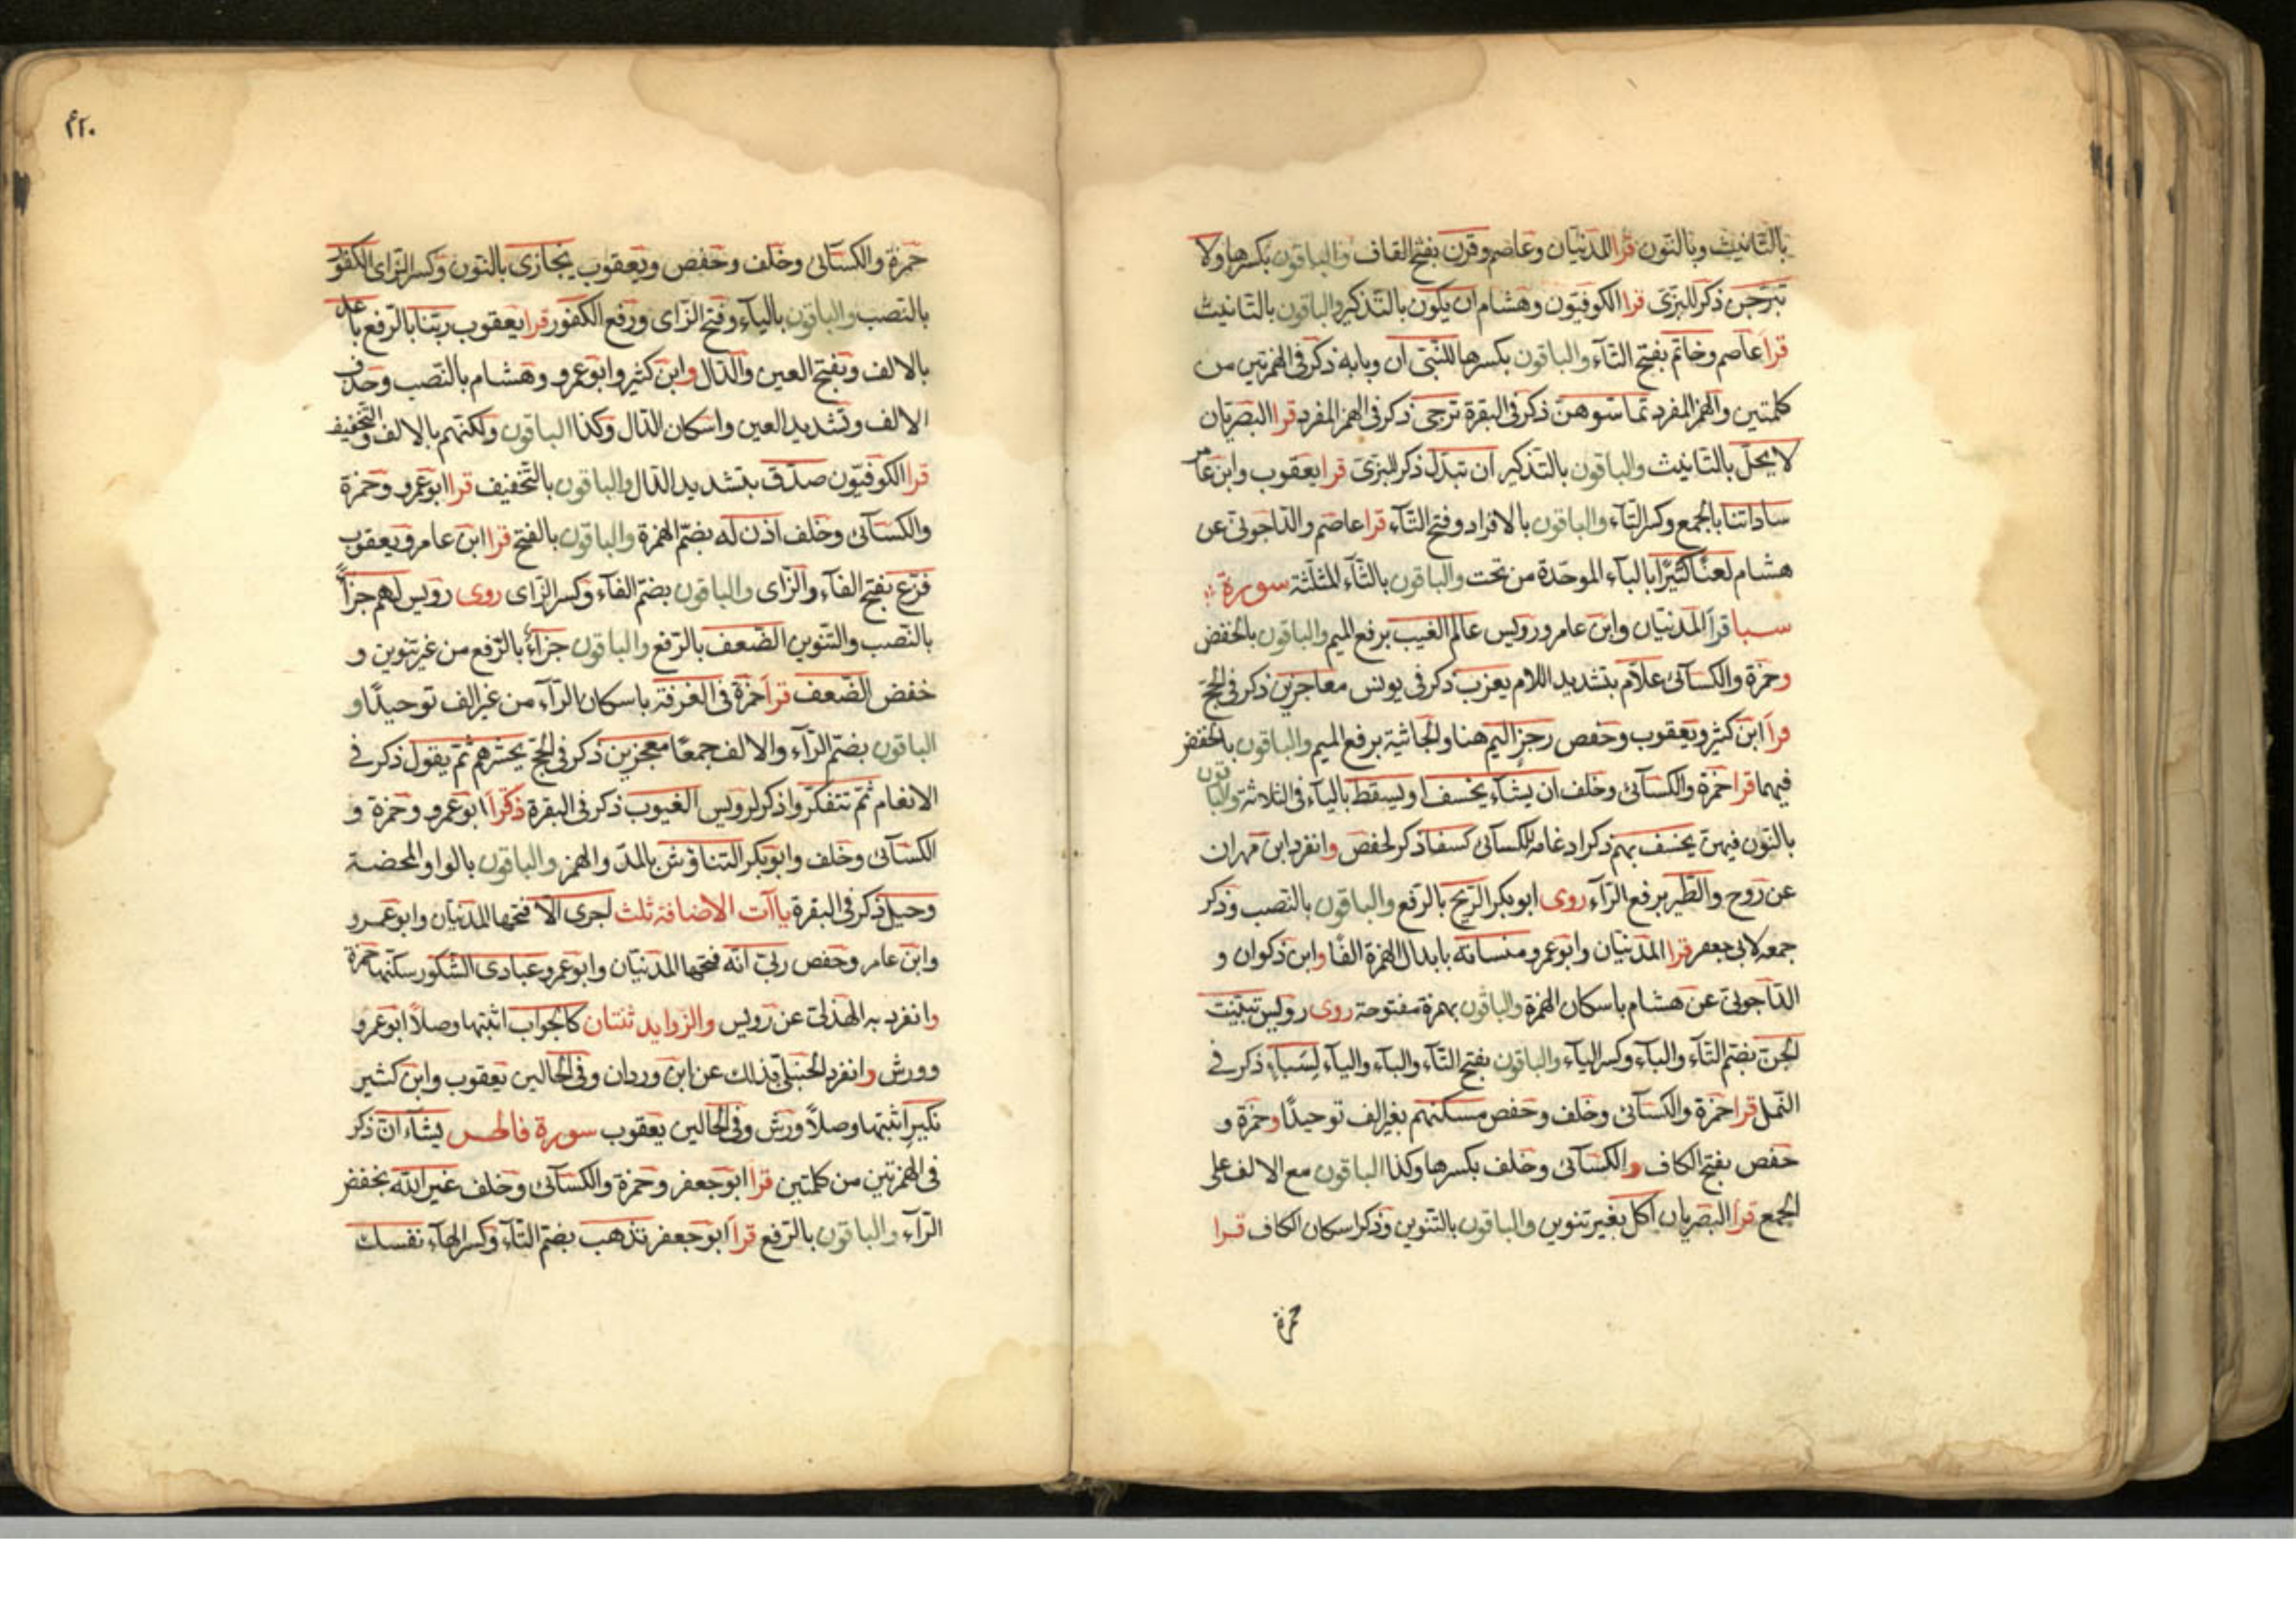 بالتانيث وبالنون قرا المدنيان وعاصم وقرن بفتح القاف والباقون بكسرها ولا
تبرجن ذكر للبزى قرا الكوفيون وهشام ان يكون بالتذكير والباقون بالتانيث
قرا عاصم وخاتم بفتح التآء والباقون بكسرها للنبى ان وبابه ذكر فى الهمزتين من
كلمتين والهمز المفرد تماسوهن ذكر فى البقرة ترجى ذكر فى الهمز المفرد قرا البصريان
لا يحل بالتانيث والباقون بالتذكير ان تبدل ذكر للبزى قرا يعقوب وابن عامر
ساداتنا بالجمع وكسر التآء والباقون بالافراد وفتح التآء قرا عاصم والداجونى عن
هشام لعنا كثيرا بالبآء الموحدة من تحت والباقون بالثآء المثلثة سورة
سبا قرا المدنيان وابن عامر ورويس عالم الغيب برفع الميم والباقون بالخفض
وحمزة والكسآئى علام بتشديد اللام يعزب ذكر فى يونس معاجزين ذكر فى الحج
قرا ابن كثير ويعقوب وحفص رجز اليم هنا والجاثية برفع الميم والباقون بالخفض
فيهما قرا حمزة والكسآئى وخلف ان يشآء يخسف او يسقط باليآء فى الثلاثة والباقون
بالنون فيهن يخسف بهم ذكر ادغامه للكسآئى كسفا ذكر لحفص وانفرد ابن مهران
عن روح والطير برفع الرآء روى ابو بكر الريح بالرفع والباقون بالنصب وذكر
جمعه لابى جعفر قرا المدنيان وابو عمرو منساته بابدال الهمزة الفا وابن ذكوان و
الداجونى عن هشام باسكان الهمزة والباقون بهمزة مفتوحة روى رويس تبينت
الجن بضم التآء والبآء وكسر اليآء والباقون بفتح التآء والبآء واليآء لسبا ذكر فى
النمل قرا حمزة والكسآئى وخلف وحفص مسكنهم بغير الف توحيدا وحمزة و
حفص بفتح الكاف والكسآئى وخلف بكسرها وكذا الباقون مع الالف على
الجمع قرا البصريان اكل بغير تنوين والباقون بالتنوين وذكر اسكان الكاف قرا
حمزة
٤٢٠
حمزة والكسآئى وخلف وحفص ويعقوب نجازى بالنون وكسر الزاى الكفور
بالنصب والباقون باليآء وفتح الزاى ورفع الكفور قرا يعقوب ربنا بالرفع باعد
بالالف وبفتح العين والدال وابن كثير وابو عمرو وهشام بالنصب وحذف
الالف وتشديد العين واسكان الدال وكذا الباقون ولكنهم بالالف والتخفيف
قرا الكوفيون صدق بتشديد الدال والباقون بالتخفيف قرا ابو عمرو وحمزة
والكسآئى وخلف اذن له بضم الهمزة والباقون بالفتح قرا ابن عامر ويعقوب
فزع بفتح الفآء والزاى والباقون بضم الفآء وكسر الزاى روى رويس لهم جزآء
بالنصب والتنوين الضعف بالرفع والباقون جزآء بالرفع من غير تنوين و
خفض الضعف قرا حمزة فى الغرفة باسكان الرآء من غير الف توحيدا و
الباقون بضم الرآء والالف جمعا معجزين ذكر فى الحج يحشرهم ثم يقول ذكر فى
الانعام ثم تتفكروا ذكر لرويس الغيوب ذكر فى البقرة ذكرا ابو عمرو وحمزة و
الكسآئى وخلف وابو بكر التناؤش بالمد والهمز والباقون بالواو المحضة
وحيل ذكر فى البقرة يآات الاضافة ثلث اجرى الا فتحها المدنيان وابو عمرو
وابن عامر وحفص ربى انه فتحها المدنيان وابو عمرو عبادى الشكور سكنها حمزة
وانفرد به الهذلى عن رويس والزوايد ثنتان كالجواب اثبتها وصلا ابو عمرو
وورش وانفرد الحنبلى بذلك عن ابن وردان وفى الحالين يعقوب وابن كثير
نكير اثبتها وصلا ورش وفى الحالين يعقوب سورة فاطر يشآء ان ذكر
فى الهمزتين من كلمتين قرا ابو جعفر وحمزة والكسآئى وخلف غير الله بخفض
الرآء والباقون بالرفع قرا ابو جعفر تذهب بضم التآء وكسر الهآء نفسك